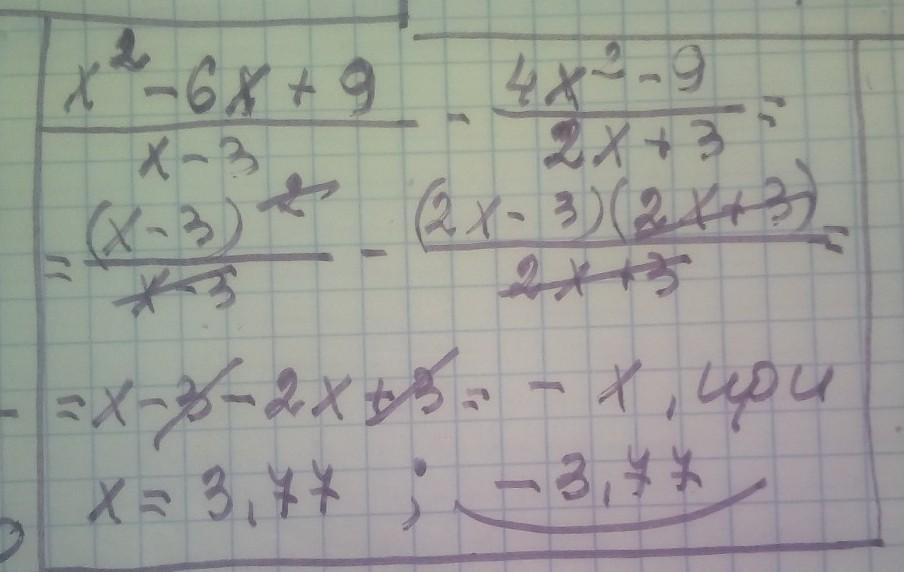 x² - 6x + 9 / x - 3 - 4x² - 9 / 2x + 3 =
= (x - 3)² / x - 3 - (2x - 3)(2x + 3) / 2x + 3 =
= x - 3 - 2x + 3 = - x , при
x = 3,77 ; - 3,77